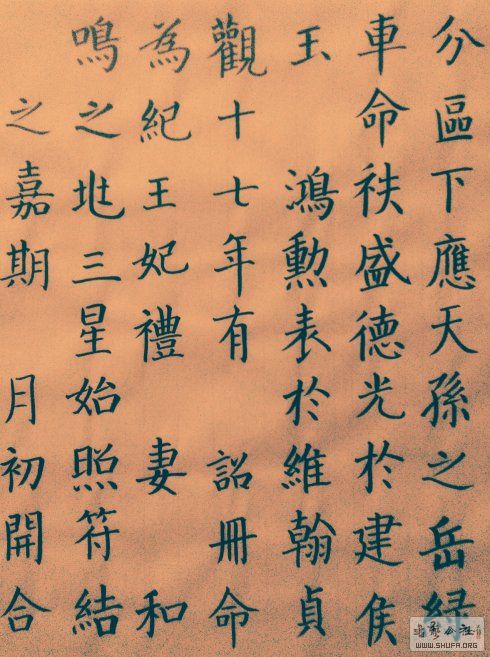 分區下應天孫之岳緑
車命袟盛德光於建侯
玉 鴻勳表於維翰貞
觀十七年有 詔冊命
為紀王妃禮 妻和
鳴之兆三星始照符結
之嘉期 月初開合
WWW.SHUFA.ORG